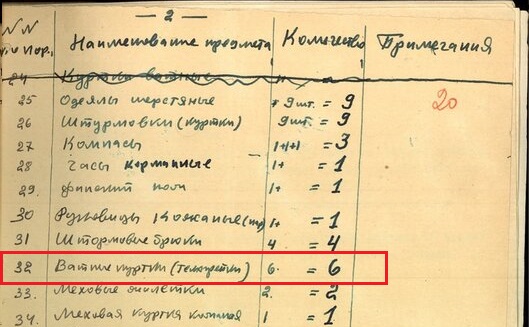 — 2 —
N N по пор. Наименование предмета Количество Примечания
24 Куртки ватные
25 Одеялы шерстяные + 9 шт. = 9 20
26 Штурмовки (куртки) 9 шт. = 9
27 Компасы 1+1+1 = 3
28 Часы карманные 1+ = 1
29. финский нож 1+ = 1
30 Рукавицы кожаные 1+ = 1
31 Штормовые брюки 4 = 4
32 Ватные куртки (телогрейки) 6. = 6
33. Меховые жилетки 2. = 2
34. Меховая куртка 1 = 1